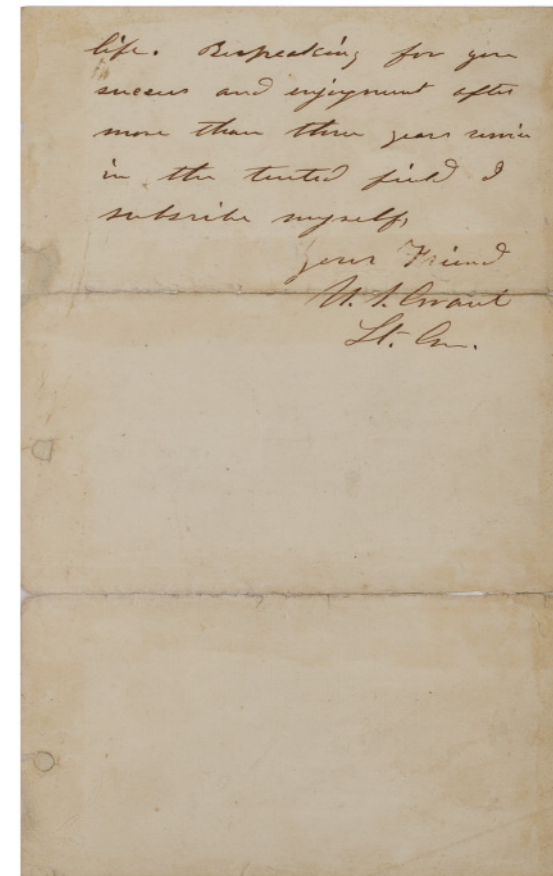 life. Bespeaking for you
success and enjoyment after
more than three years service
in the tented field I
subscribe myself,
your Friend
U. S. Grant
Lt. Gn.